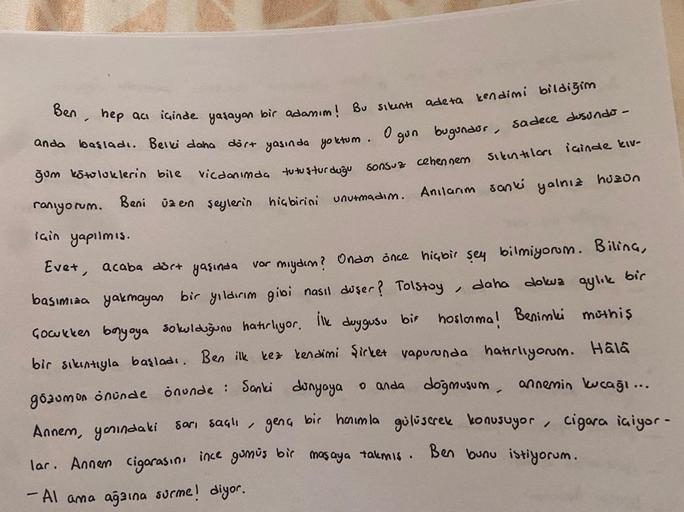 Ben, hep acı içinde yaşayan bir adamım! Bu sıkıntı adeta kendimi bildiğim
anda başladı. Belki daha dört yaşında yoktum. O gün bugündür, sadece düşündü-
ğüm kötülüklerin bile vicdanımda tutuşturduğu sonsuz cehennem sıkıntıları içinde kıv-
ranıyorum. Beni üzen şeylerin hiçbirini unutmadım. Anılarım sanki yalnız hüzün
için yapılmış.
Evet, acaba dört yaşında var mıydım? Ondan önce hiçbir şey bilmiyorum. Bilinç,
başımıza yakmayan bir yıldırım gibi nasıl düşer? Tolstoy, daha dokuz aylık bir
çocukken banyoya sokulduğunu hatırlıyor. İlk duygusu bir hoşlanma! Benimki müthiş
bir sıkıntıyla başladı. Ben ilk kez kendimi Şirket vapurunda hatırlıyorum. Hâlâ
gözümün önünde önünde : Sanki dünyaya o anda doğmuşum, annemin kucağı...
Annem, yanındaki sarı saçlı, genç bir hanımla gülüşerek konuşuyor, cigara içiyor-
lar. Annem cigarasını ince gümüş bir maşaya takmış. Ben bunu istiyorum.
- Al ama ağzına sürme! diyor.